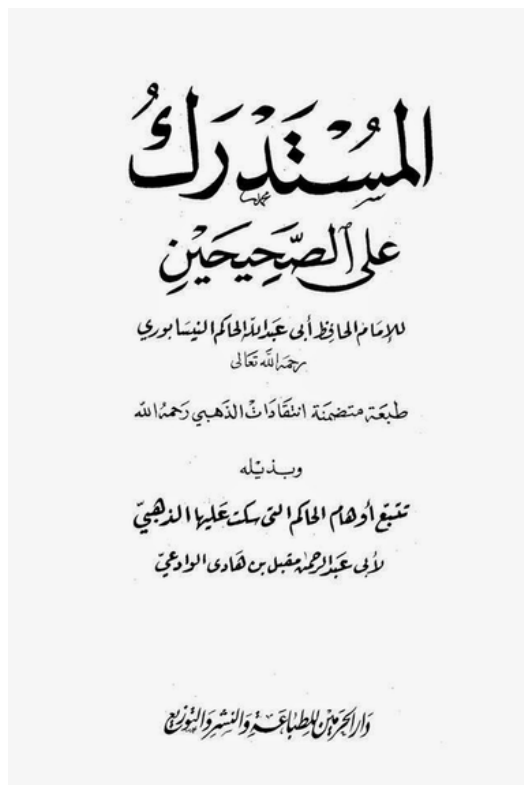 المُسْتَدْرَكُ
على الصَّحِيحَيْنِ
للإمَام الحَافِظ أبى عَبدالله الحَاكم النيسَابوري
رحمَه الله تعَالى
طبعَة متضمنَة انتقَادَات الذهَبي رَحمهُ الله
وبذيله
تتبع أوهام الحاكم التى سكت عَليها الذهبيّ
لأبى عَبدالرحمن مقبل بن هَادى الوادعيّ
دَار الحَرمَين للطبَاعَة وَالنشر وَالتوزيع